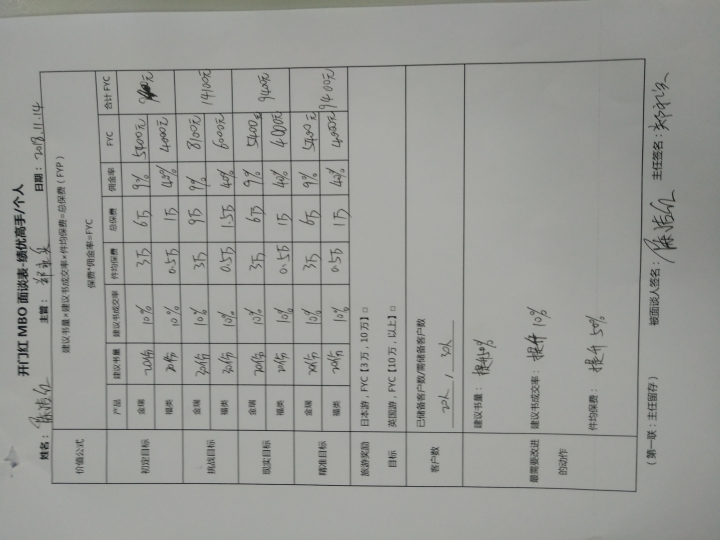 开门红 MBO 面谈表-绩优高手/个人
姓名： 主管： 日期：2018.11.14
价值公式 建议书量×建议书成交率×件均保费=总保费（FYP）
保费*佣金率=FYC
产品 建议书量 建议书成交率 件均保费 总保费 佣金率 FYC 合计 FYC
初定目标 金瑞 20份 10% 3万 6万 9% 5400元
福类 20份 10% 0.5万 1万 40% 4000元
挑战目标 金瑞 30份 10% 3万 9万 9% 8100元 14100元
福类 30份 10% 0.5万 1.5万 40% 6000元
现实目标 金瑞 20份 10% 3万 6万 9% 5400元 9400元
福类 20份 10% 0.5万 1万 40% 4000元
精准目标 金瑞 20份 10% 3万 6万 9% 5400元 9400元
福类 20份 10% 0.5万 1万 40% 4000元
旅游奖励 目标 日本游，FYC【3万，10万】□
英国游，FYC【10万，以上】□
客户数 已储备客户数/需储备客户数
20人 / 30人
最需要改进 的动作 建议书量：提升50%
建议书成交率：提升10%
件均保费：提升50%
被面谈人签名： 主任签名：
（第一联：主任留存）